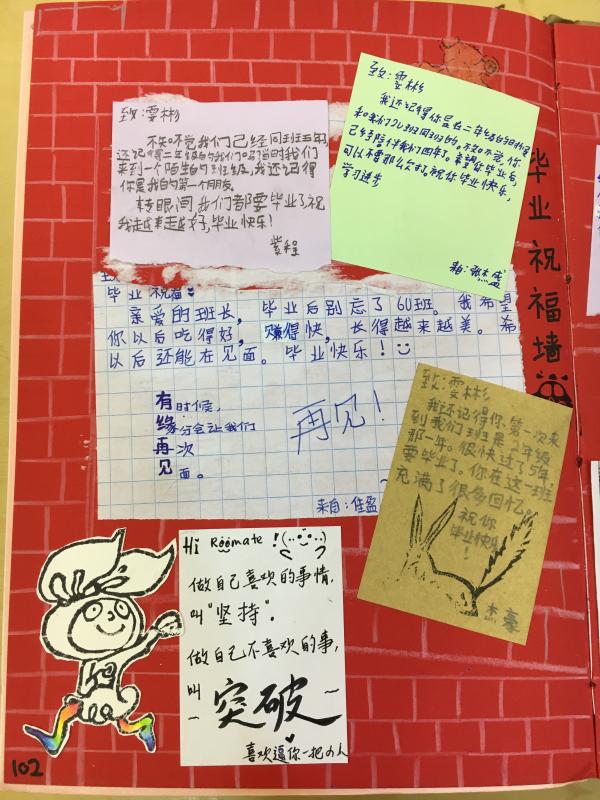 致:雯彬
不知不觉我们己经同班五年
还记得二年级的我们吗?当时我们
来到一个陌生的班级,我还记得
你是我的第一个朋友。
转眼间我们都要毕业了祝
我越来越好,毕业快乐!
紫程
致:雯彬
我还记得你是在二年级的时候
和我们2L班同班的。不知不觉,你
已经陪伴我们四年了。希望你毕业后,
可以不要那么八卦。祝你毕业快乐,
学习进步
毕业祝福墙
毕业祝福:
亲爱的班长,毕业后别忘了6U班。我希望
你以后吃得好,赚得快,长得越来越美。希
以后还能在见面。毕业快乐!
有时候,
缘分会让我们
再次
见面。
再见!
来自:佳盈
致:雯彬
我还记得你第一次来
到我们班是二年级
那一年。很快过了5年,
要毕业了。你在这一班,
充满了很多回忆。
祝你
毕业快乐
!
杰豪
Hi Roomate !
做自己喜欢的事情,
叫"坚持".
做自己不喜欢的事,
叫
~突破~
喜欢逼你一把の人
102